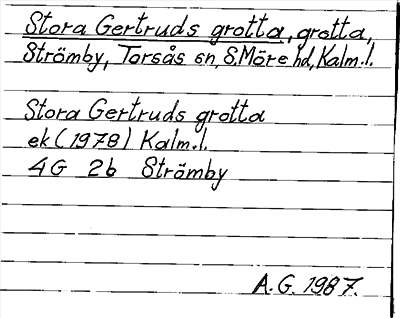 Stora Gertruds grotta, grotta,
Strömby, Torsås sn, S.Möre hd, Kalm.l.
Stora Gertruds grotta
ek (1978) Kalm.l.
4G 2b Strömby
A.G. 1987.